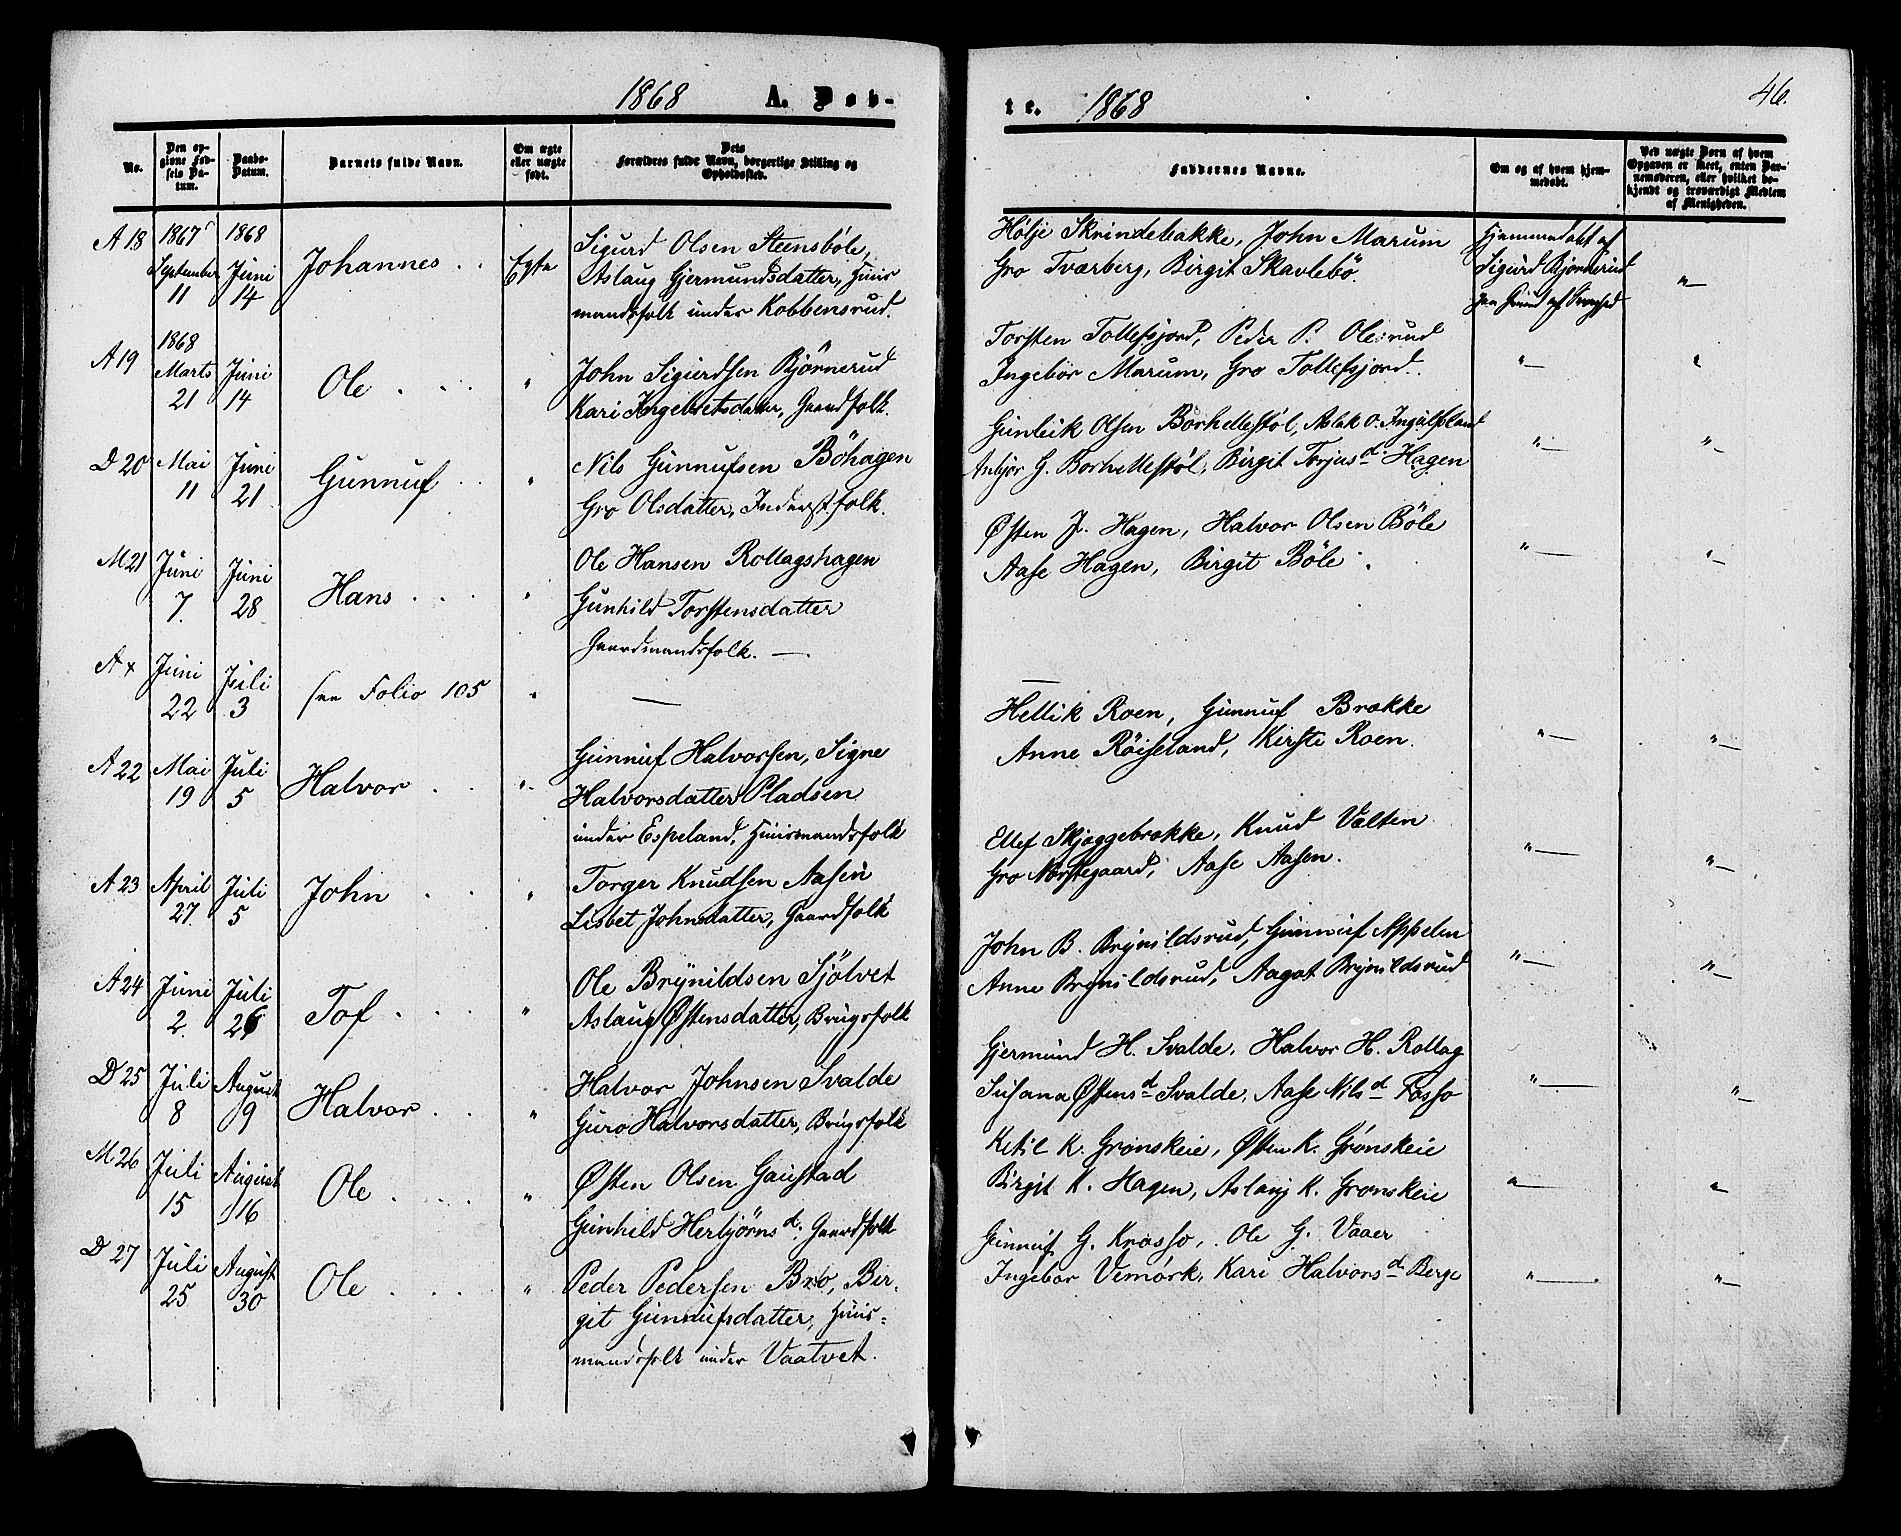 1868 A. Døb-
No.
Den op-
givne Fød-
sels Da-
tum.
Daabs-
Datum.
Barnets fulde Navn.
Om ægte
eller uægte
født.
Dets
Forældres fulde Navn, borgerlige Stilling og
Opholdssted.
A 18
1867
September
11
1868
Juni
14
Johannes
Egte
Sigurd Olsen Steensböle,
Aslaug Gjermundsdatter, Huus
mandsfolk under Kobbensrud.
A 19
1868
Marts
21
Juni
14
Ole
"
John Sigurdsen Bjørnerud
Kari Ingebretsdatter, Gaardfolk.
D 20
Mai
11
Juni
21
Gunnuf
"
Nils Gunnufsen Böhagen
Gro Olsdatter, Inderstfolk.
M 21
Juni
7
Juni
28
Hans
"
Ole Hansen Rollagshagen
Gunhild Torstensdatter
Gaardmandsfolk. —
A x
Juni
22
Juli
3
see Folio 105
"
—
A 22
Mai
19
Juli
5
Halvor
"
Gunnuf Halvorsen, Signe
Halvorsdatter Pladsen
under Espeland, Huusmandsfolk
A 23
April
27
Juli
5
John
"
Torger Knudsen Aasen
Lisbet Johnsdatter, Gaardfolk
A 24
Juni
2
Juli
26
Tof
"
Ole Brynildsen Sjølvet
Aslaug Østensdatter, Brugsfolk
D 25
Juli
8
August
9
Halvor
"
Halvor Johnsen Svalde
Guro Halvorsdatter, Brugsfolk
M 26
Juli
15
August
16
Ole
"
Østen Olsen Gaustad
Gunhild Herbjørnsd. Gaardfolk
D 27
Juli
25
August
30
Ole
"
Peder Pedersen Bro, Bir-
git Gunnufsdatter, Huus-
mandsfolk under Vaatvet.
te. 1868
46.
Faddernes Navne.
Om og af hvem hjem-
medøbt.
Ved uægte Børn af hvem
Opgaven er skeet, enten Bar-
nemoderen, eller hvilket be-
kjendt og troværdigt Medlem
af Menigheden.
Hølje Skrindebakke, John Marum
Gro Tværberg, Birgit Skavlebö.
Hjemmedøbt af
Sigurd Bjørnerud
paa Grund af
"—
Torsten Tollefsjord, Peder P. Olesrud
Ingebor Marum, Gro Tollefsjord.
"—
"
Gunleik Olsen Borhellestøl, Aslak O. Ingulfsland
Anbjor G. Borhellestøl, Birgit Torjusd. Hagen
"—
"—
Østen J. Hagen, Halvor Olsen Böle
Aase Hagen, Birgit Böle.
"—
"—
—
Hellik Roen, Gunnuf Brække
Anne Röiseland, Kirsti Roen.
"—
"—
Ellef Skjæggebrække, Knud Vælten
Gro Norstegaard, Aase Aasen.
"—
"—
John B. Brynildsrud, Gunnuf Appelen
Anne Brynildsrud, Aagot Brynildsrud
"—
"—
Gjermund H. Svalde, Halvor H. Rollag
Susana Østensd Svalde, Aase Nilsd Fosso
"—
"—
Ketil K. Grønskeie, Østen K. Grönskeie
Birgit K. Hagen, Aslaug K. Grønskeie
"—
"—
Gunnuf G. Krosso, Ole G. Vaaer
Ingebor Vemørk, Kari Halvorsd Berge
"—
"—